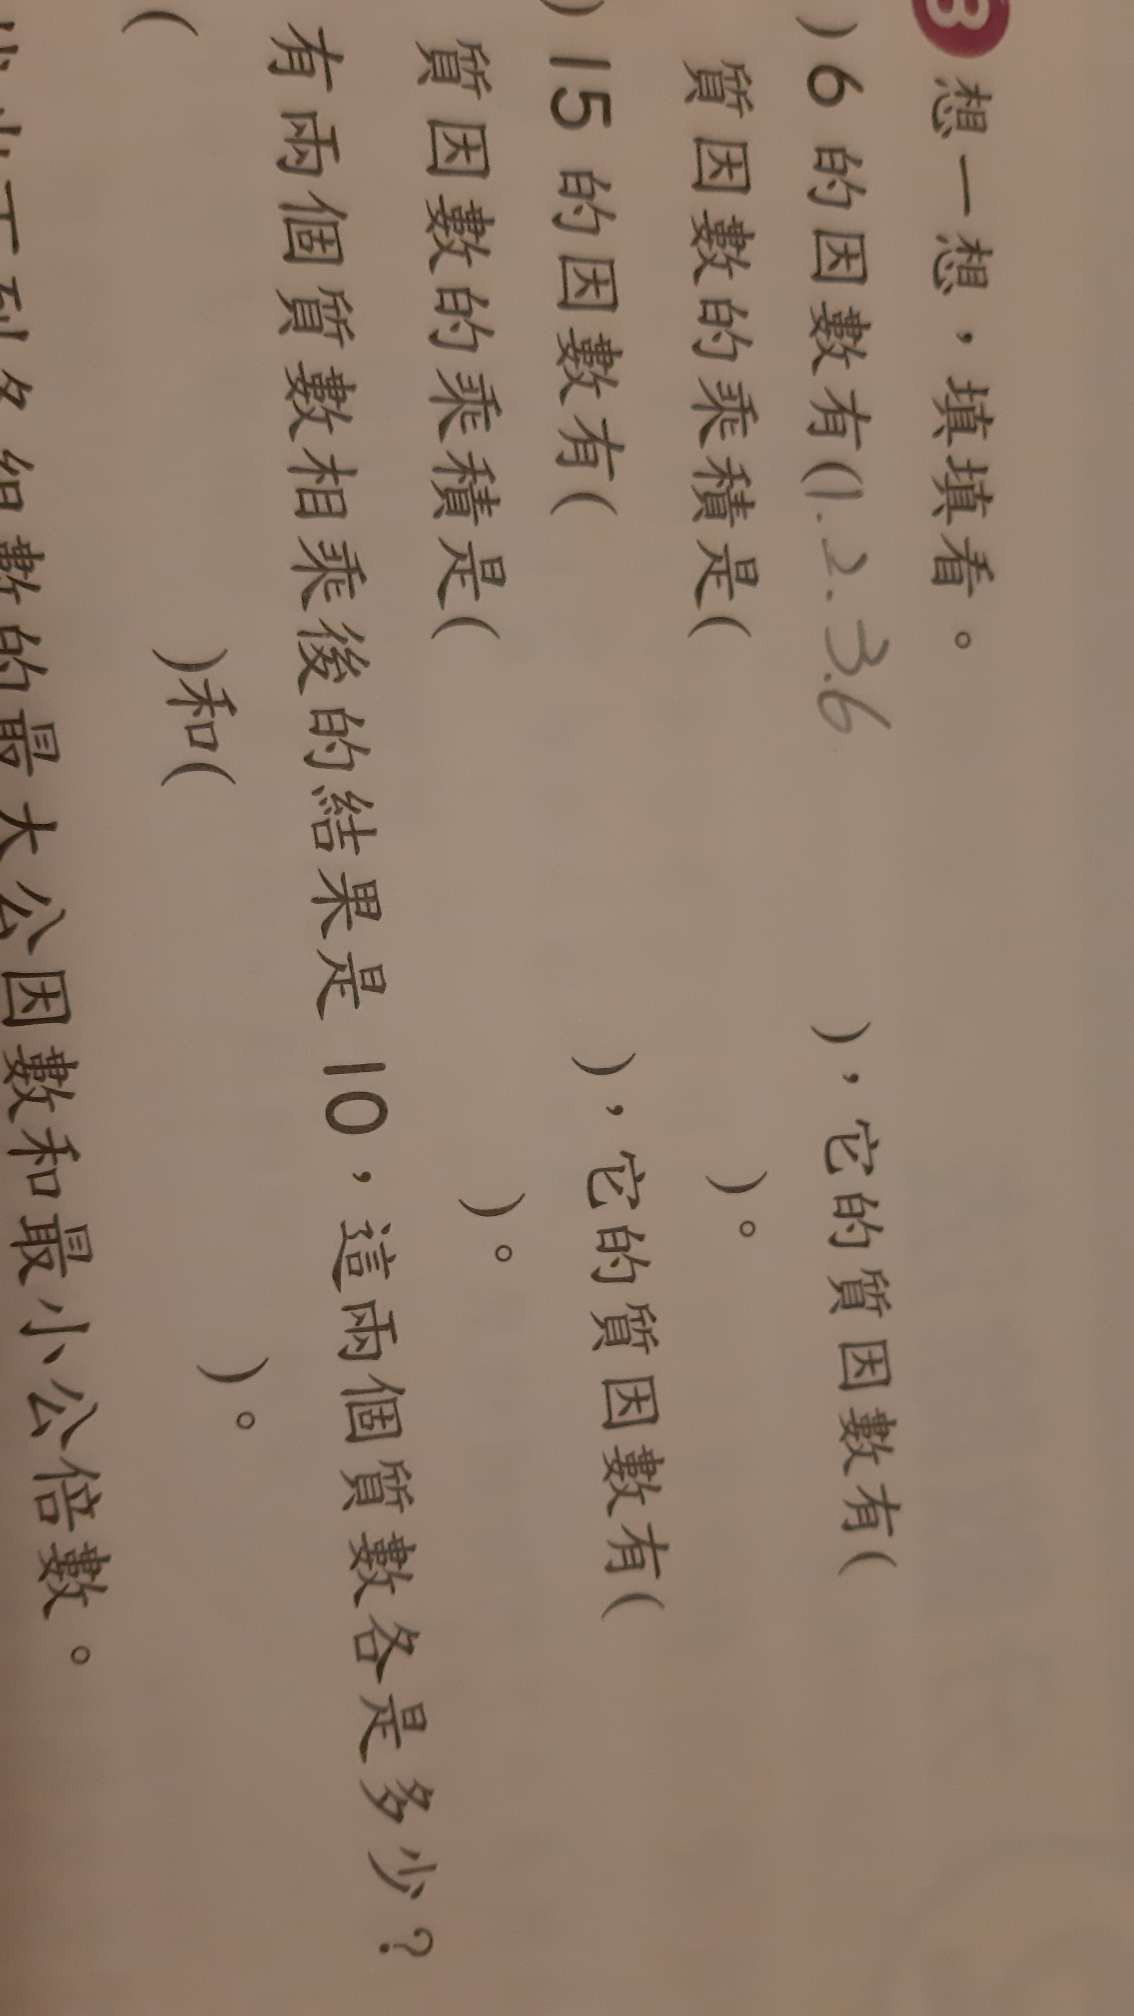 3 想一想，填填看。
)6 的因數有(1.2.3.6 )，它的質因數有(
質因數的乘積是( )。
)15 的因數有( )，它的質因數有(
質因數的乘積是( )。
有兩個質數相乘後的結果是 10，這兩個質數各是多少？
( )和( )。
下列各組數的最大公因數和最小公倍數。